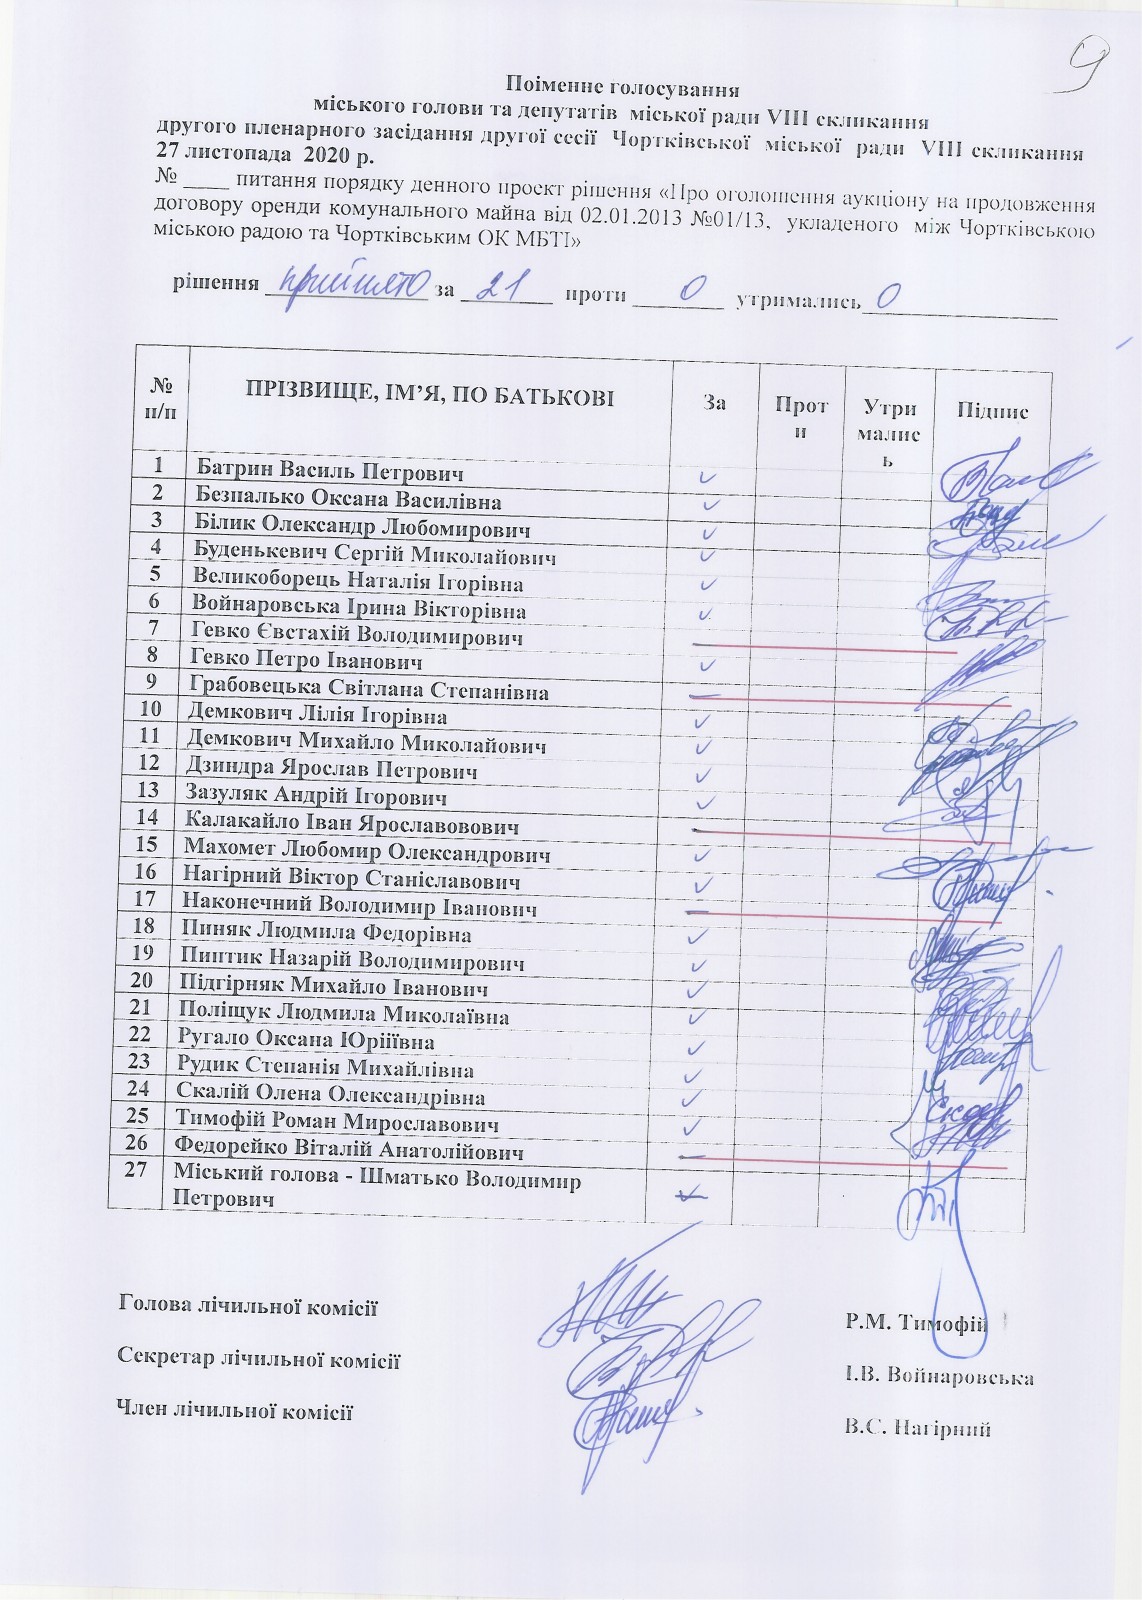 9
Поіменне голосування
міського голови та депутатів міської ради VIII скликання
другого пленарного засідання другої сесії Чортківської міської ради VIII скликання
27 листопада 2020 р.
№ ____ питання порядку денного проект рішення «Про оголошення аукціону на продовження
договору оренди комунального майна від 02.01.2013 №01/13, укладеного між Чортківською
міською радою та Чортківським ОК МБТІ»
рішення прийнято за 21 проти 0 утримались 0
№ п/п ПРІЗВИЩЕ, ІМ’Я, ПО БАТЬКОВІ За Проти Утрималис ь Підпис
1 Батрин Василь Петрович ✓
2 Безпалько Оксана Василівна ✓
3 Білик Олександр Любомирович ✓
4 Буденькевич Сергій Миколайович ✓
5 Великоборець Наталія Ігорівна ✓
6 Войнаровська Ірина Вікторівна ✓
7 Гевко Євстахій Володимирович –
8 Гевко Петро Іванович ✓
9 Грабовецька Світлана Степанівна –
10 Демкович Лілія Ігорівна ✓
11 Демкович Михайло Миколайович ✓
12 Дзиндра Ярослав Петрович ✓
13 Зазуляк Андрій Ігорович ✓
14 Калакайло Іван Ярославовович –
15 Махомет Любомир Олександрович ✓
16 Нагірний Віктор Станіславович ✓
17 Наконечний Володимир Іванович –
18 Пиняк Людмила Федорівна ✓
19 Пиптик Назарій Володимирович ✓
20 Підгірняк Михайло Іванович ✓
21 Поліщук Людмила Миколаївна ✓
22 Ругало Оксана Юріїївна ✓
23 Рудик Степанія Михайлівна ✓
24 Скалій Олена Олександрівна ✓
25 Тимофій Роман Мирославович ✓
26 Федорейко Віталій Анатолійович –
27 Міський голова - Шматько Володимир
Петрович ✓
Голова лічильної комісії Р.М. Тимофій
Секретар лічильної комісії І.В. Войнаровська
Член лічильної комісії В.С. Нагірний